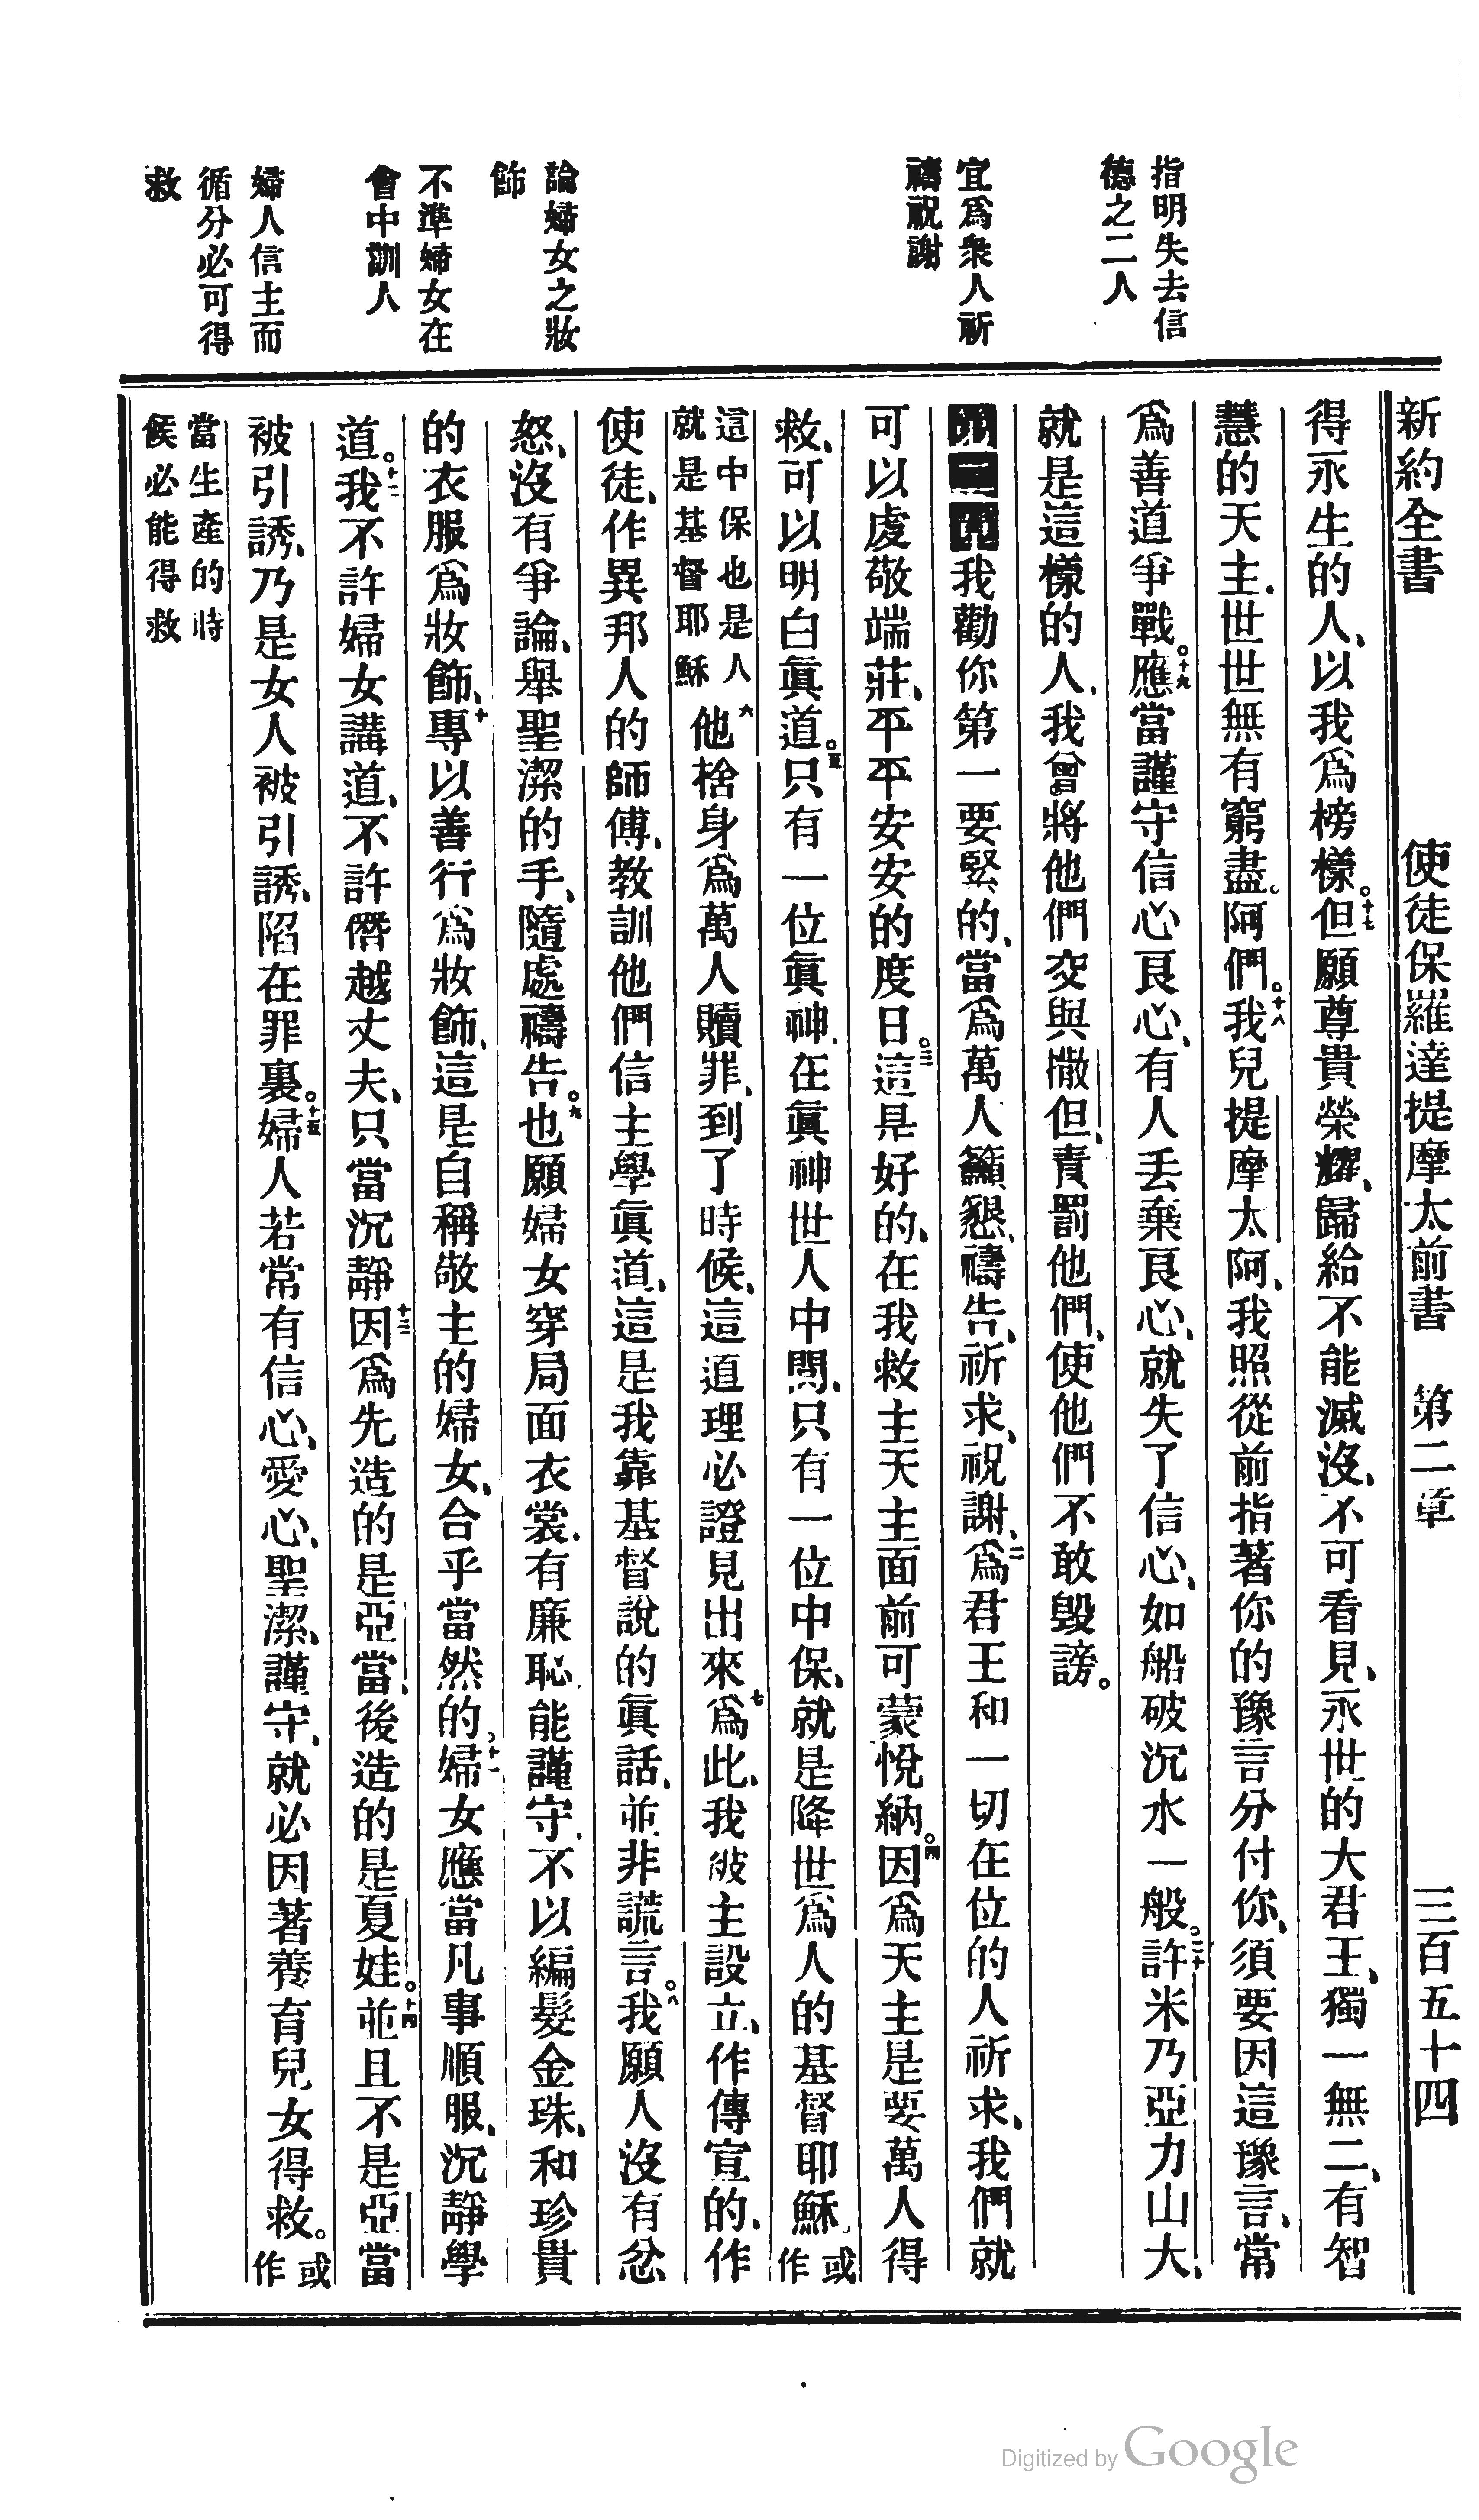 新約全書　使徒保羅達提摩太前書　第二章　三百五十四
指明失去信
德之二人
宜爲衆人祈
禱祝謝
論婦女之妝
飾
不準婦女在
會中訓人
婦人信主而
循分必可得
救
得永生的人、以我爲榜樣。十七但願尊貴榮耀、歸給不能滅沒、不可看見、永世的大君王、獨一無二、有智
慧的天主、世世無有窮盡。阿們。十八我兒提摩太阿、我照從前指著你的豫言分付你、須要因這豫言、常
爲善道爭戰。十九應當謹守信心艮心、有人丢棄艮心、就失了信心、如船破沉水一般。二十許米乃亞力山大、
就是這樣的人、我曾將他們交與撒但、責罰他們、使他們不敢毀謗。
第二章我勸你第一要緊的、當爲萬人籲懇、禱告、祈求、祝謝、二爲君王和一切在位的人祈求、我們就
可以虔敬端莊、平平安安的度日。三這是好的、在我救主天主面前可蒙悅納。四因爲天主是要萬人得
救、可以明白眞道。五只有一位眞神、在眞神世人中間、只有一位中保、就是降世爲人的基督耶穌。或作
這中保也是人
就是基督耶穌
六他捨身爲萬人贖罪、到了時候、這道理必證見出來七爲此、我被主設立、作傳宣的、作
使徒、作異邦人的師傅、教訓他們信主學眞道、這是我靠基督說的眞話、並非謊言。八我願人沒有忿
怒、沒有爭論、舉聖潔的手、隨處禱告。九也願婦女穿局面衣裳、有廉恥、能謹守、不以編髮金珠、和珍貴
的衣服爲妝飾、十專以善行爲妝飾、這是自稱敬主的婦女、合乎當然的。十一婦女應當凡事順服、沉靜學
道。十二我不許婦女講道、不許僭越丈夫、只當沉靜十三因爲先造的是亞當、後造的是夏娃。十四並且不是亞當
被引誘、乃是女人被引誘、陷在罪裏。十五婦人若常有信心、愛心、聖潔、謹守、就必因著養育兒女得救。或作
當生產的時
候必能得救
Digitized by Google